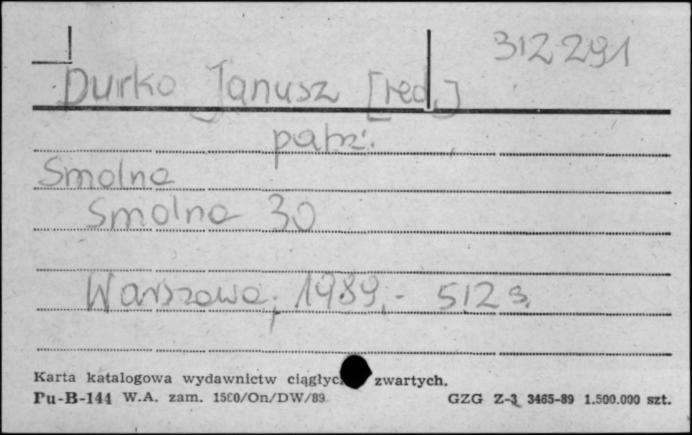 312291
Durko Janusz [red.]
patrz:
Smolna
Smolna 30
Warszawa, 1989.- 512 s.
Karta katalogowa wydawnictw zwartych.
Pu-B-144 W.A. zam. 1560/On/DW/89 GZG Z-3 3465-89 1.500.000 szt.